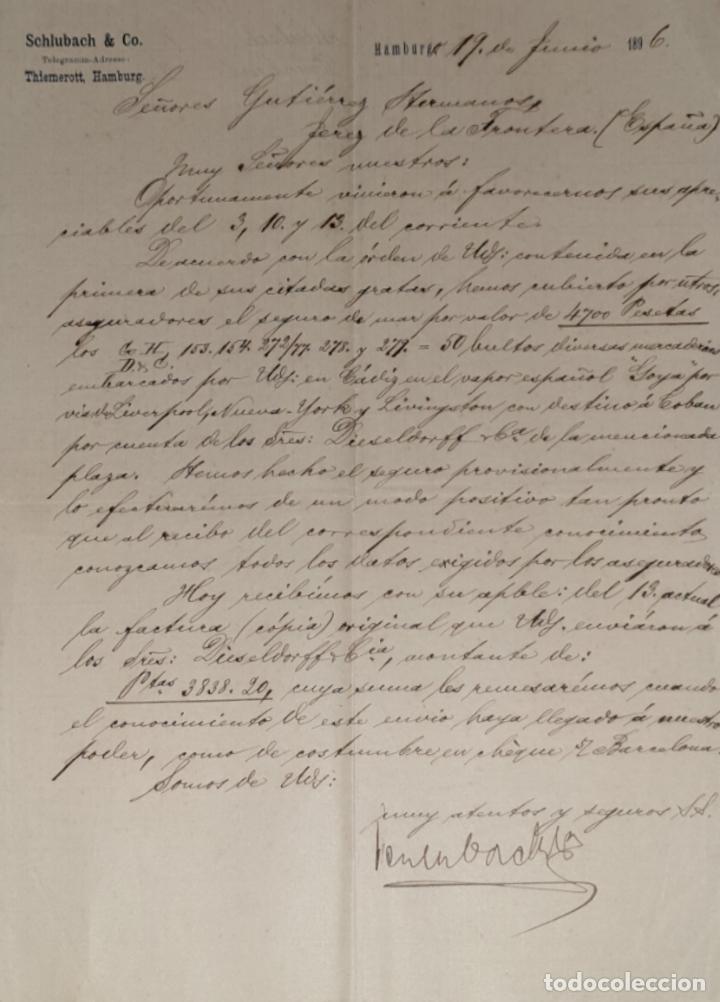 Schlubach & Co.
Telegramm-Adresse:
Thiemerott, Hamburg.
Hamburg, 19. de Junio 1896.
Señores Gutiérrez Hermanos,
Jerez de la Frontera. (España)
Muy Señores nuestros:
Oportunamente vinieron á favorecernos sus apre-
ciables del 3, 10. y 13. del corriente.
De acuerdo con la órden de Uds: contenida en la
primera de sus citadas gratas, hemos cubierto por ntros,
aseguradores el seguro de mar por valor de 4700 Pesetas
los G. H, 153. 154. 272/77. 278. y 279. = 50 bultos diversas mercaderias
D. & C.
embarcados por Uds: en Cádiz en el vapor español "Goya" por
via de Liverpool, Nueva-York y Livingston con destino á Coban
por cuenta de los Sres: Dieseldorff & Ca. de la mencionada
plaza. Hemos hecho el seguro provisionalmente y
lo efectuarémos de un modo positivo tan pronto
que al recibo del correspondiente conocimiento
conozcamos todos los datos exigidos por los aseguradores
Hoy recibímos con su apble: del 13. actual
la factura (cópia) original que Uds. enviáron á
los Sres: Dieseldorff & Cia, montante de:
Ptas 3838.20, cuya suma les remesarémos cuando
el conocimiento de este envio haya llegado á nuestro
poder, como de costumbre en chèque s/ Barcelona.
Somos de Uds:
muy atentos y seguros S.S.
Schlubach & Co
todocoleccion